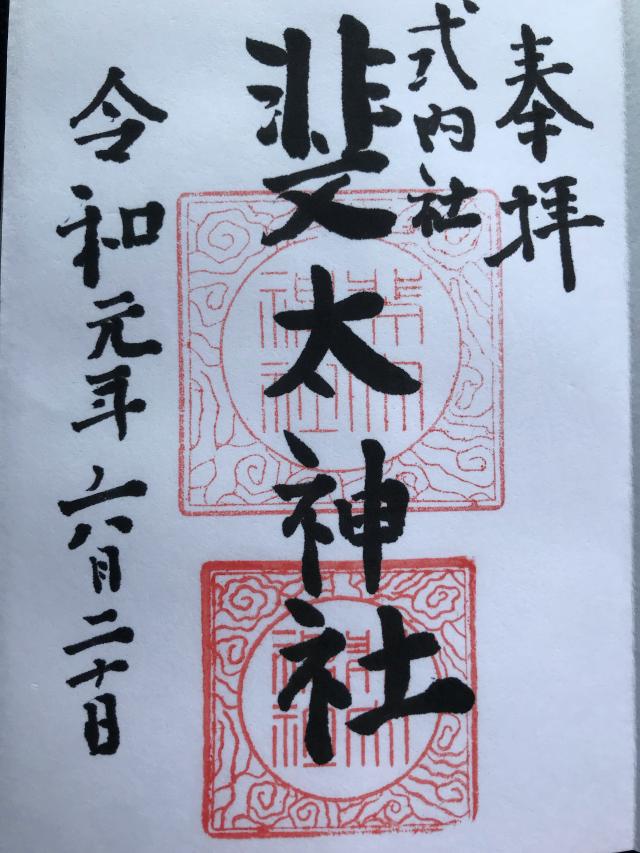 奉拝
式内社
斐太神社
令和元年六月二十日